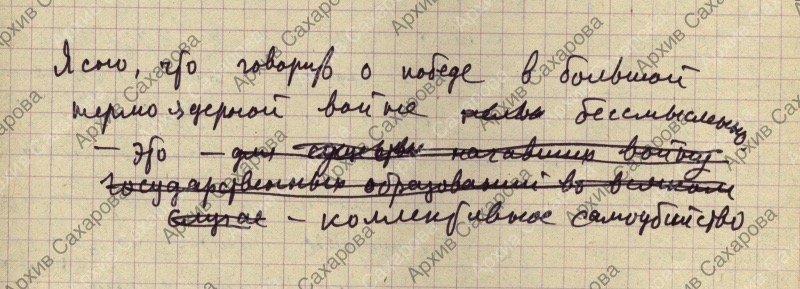 Ясно, что говорить о победе в большой
термоядерной войне нельзя бессмысленно
– это – для существ начавших войну
государственных образований во всяком
случае – коллективное самоубийство
Архив Сахарова